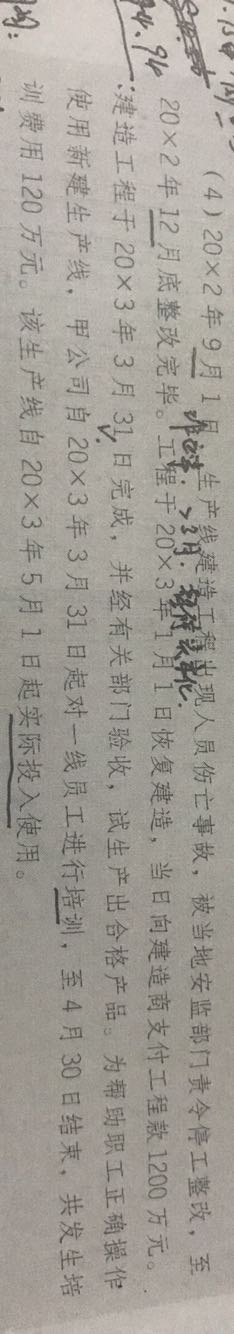 (4) 20×2年9月1日,生产线建造工程出现人员伤亡事故,被当地安监部门责令停工整改,至
20×2年12月底整改完毕。工程于20×3年1月1日恢复建造,当日向建造商支付工程款1200万元。
建造工程于20×3年3月31日完成,并经有关部门验收,试生产出合格产品。为帮助职工正确操作
使用新建生产线,甲公司自20×3年3月31日起对一线员工进行培训,至4月30日结束,共发生培
训费用120万元。该生产线自20×3年5月1日起实际投入使用。